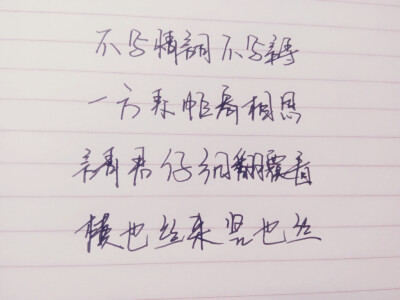 不写情詞不写詩
一方素帕寄相思
請君仔细翻覆看
横也丝来竖也丝